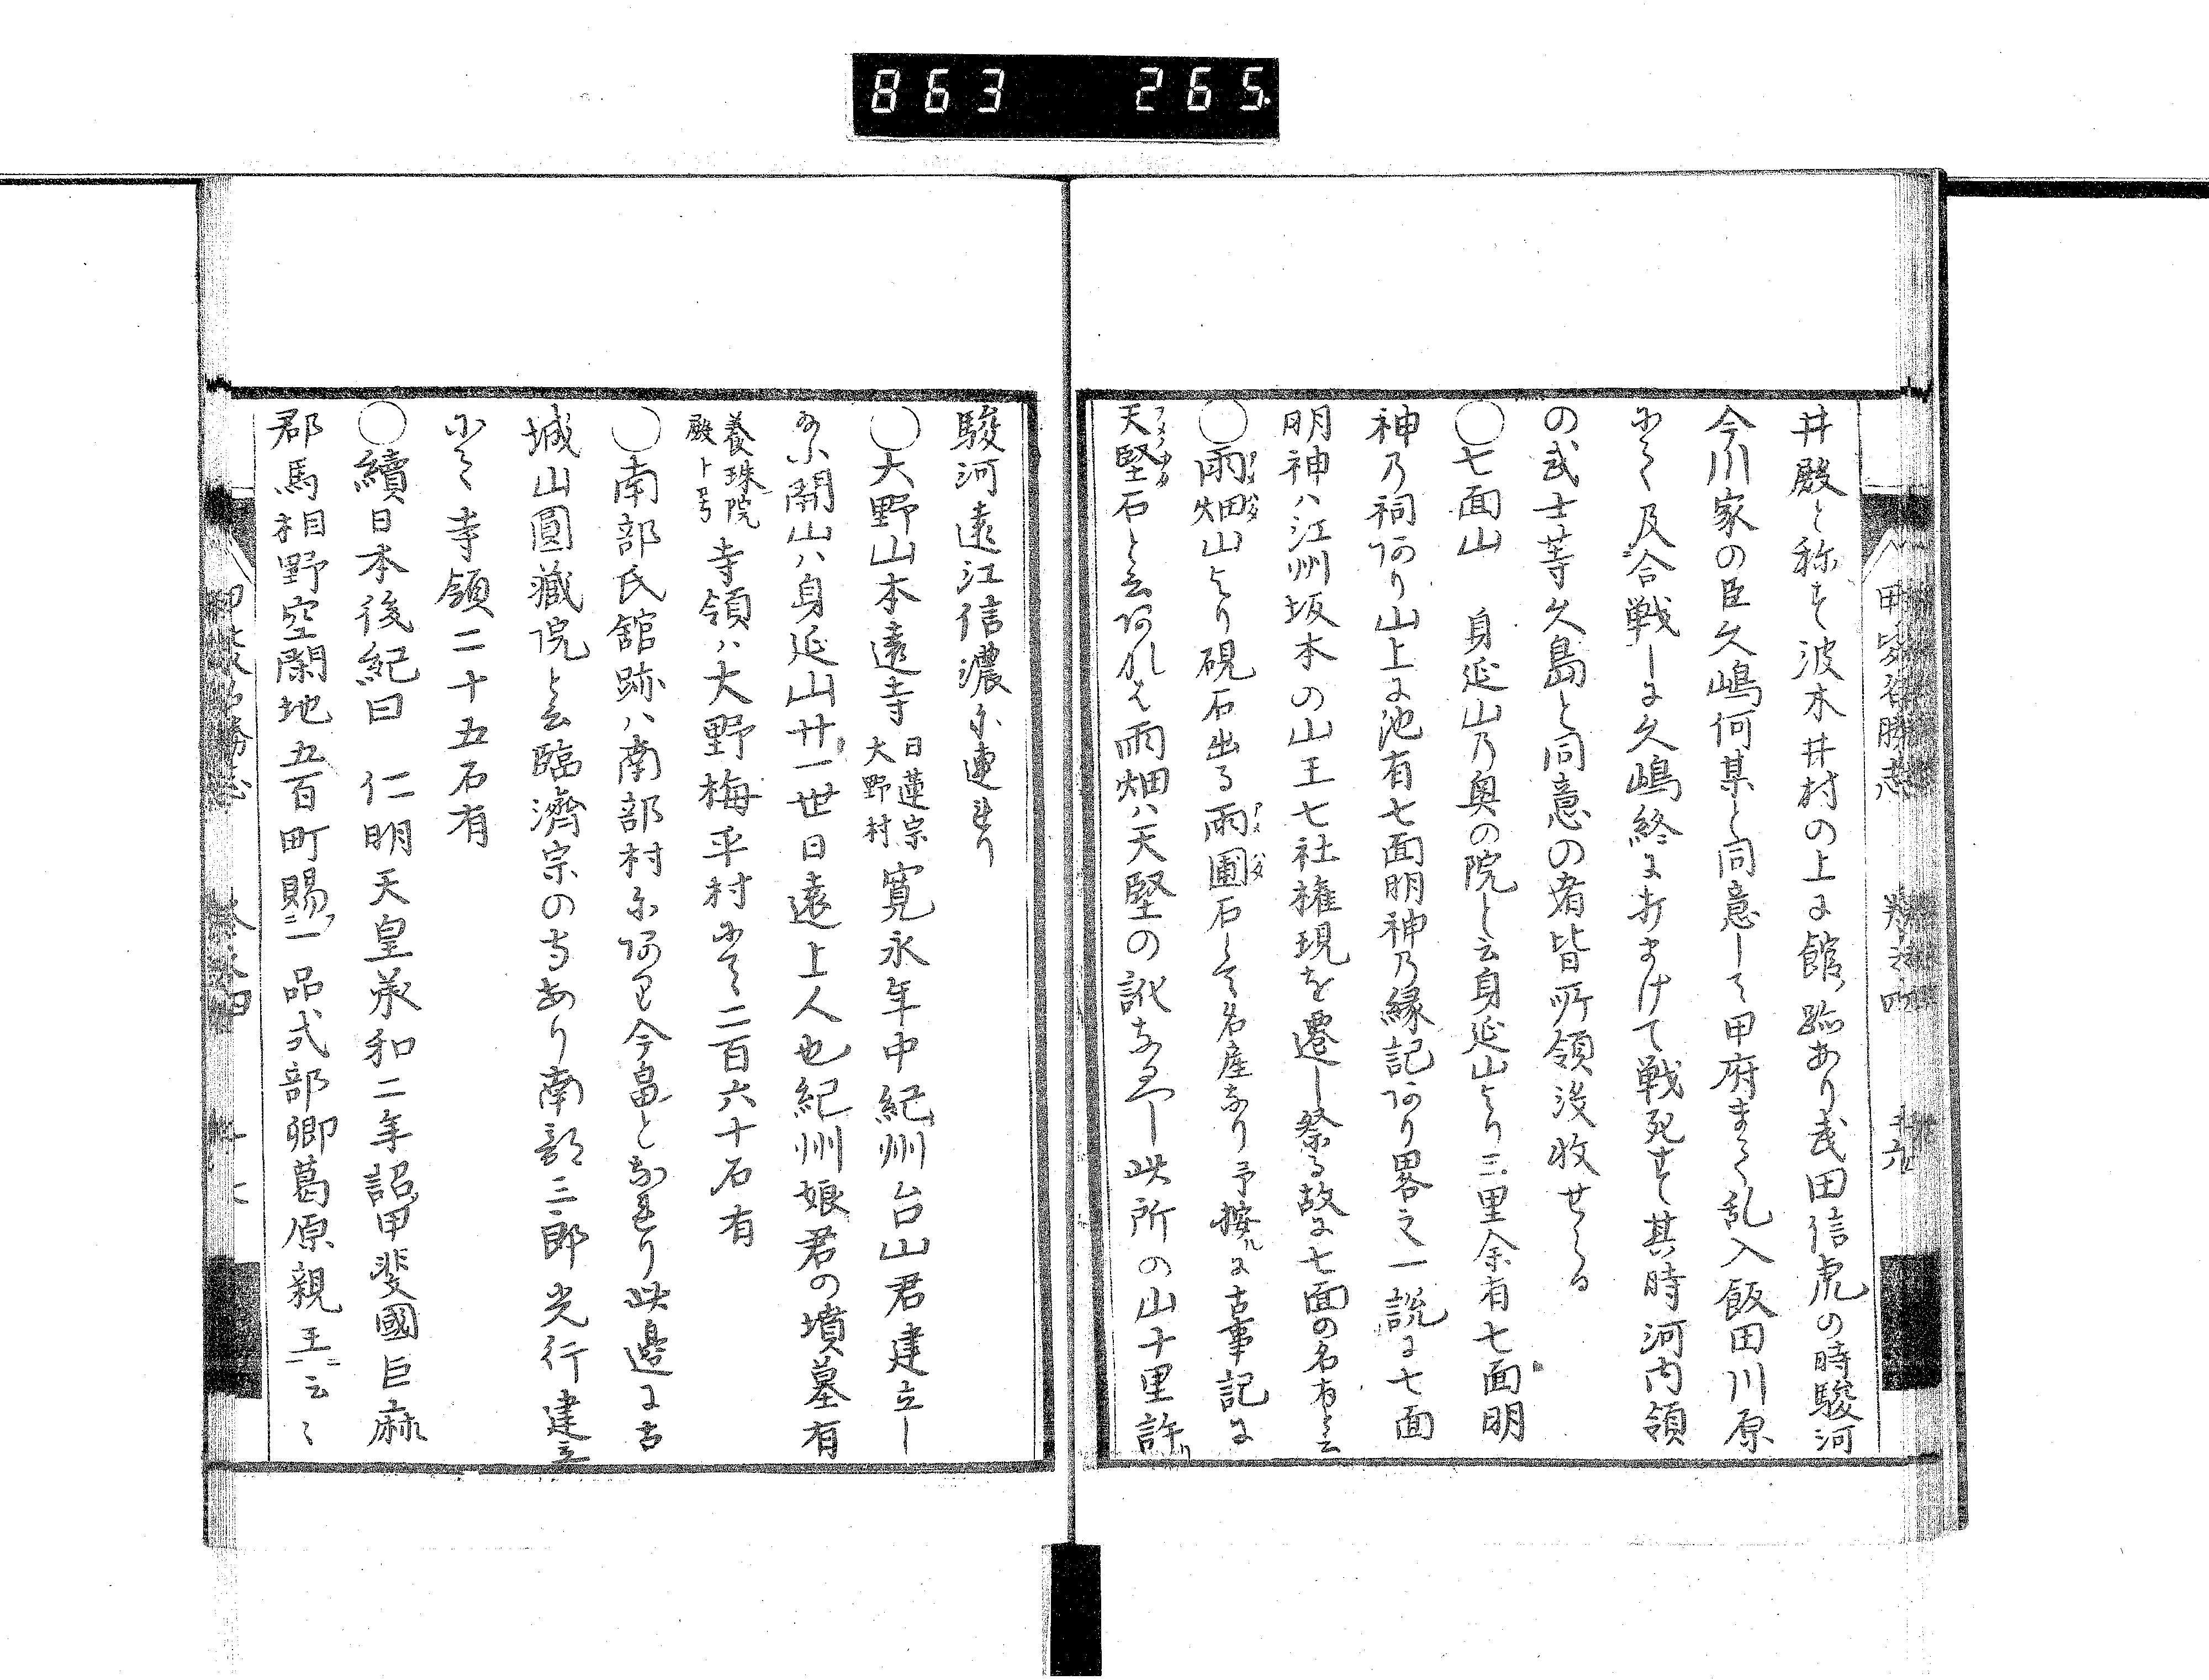 863 265
井殿と称す波木井村の上に館跡あり武田信虎の時駿河
今川家の臣久嶋何某と同意して甲府まて乱入飯田川原
にて及合戦しに久嶋終に打まけて戦死す其時河内領
の武士等久島と同意の者皆所領没収せらる
○七面山 身延山乃奥の院と云身延山より三里余有七面明
神乃祠あり山上に池有七面明神乃縁記あり畧之一説に七面
明神ハ江州坂本の山王七社権現を遷し祭る故に七面の名有と云
○雨畑山より硯石出る雨圃石とて名産なり予按ルに古事記に
天堅石と云あれは雨畑ハ天堅の訛なるへし此所の山十里許
駿河遠江信濃に連れり
○大野山本遠寺 日蓮宗 大野村 寛永年中紀州台山君建立し
開山ハ身延山廿一世日遠上人也紀州娘君の墳墓有
養珠院殿ト号 寺領ハ大野梅平村にて二百六十石有
○南部氏舘跡ハ南部村にあり今畠となれり此邊に古
城山圓藏院と云臨濟宗の寺あり南部三郎光行建立
にて寺領二十五石有
○續日本後紀曰 仁明天皇承和二年詔甲斐國巨麻
郡馬相野空閑地五百町賜一品式部卿葛原親王云々